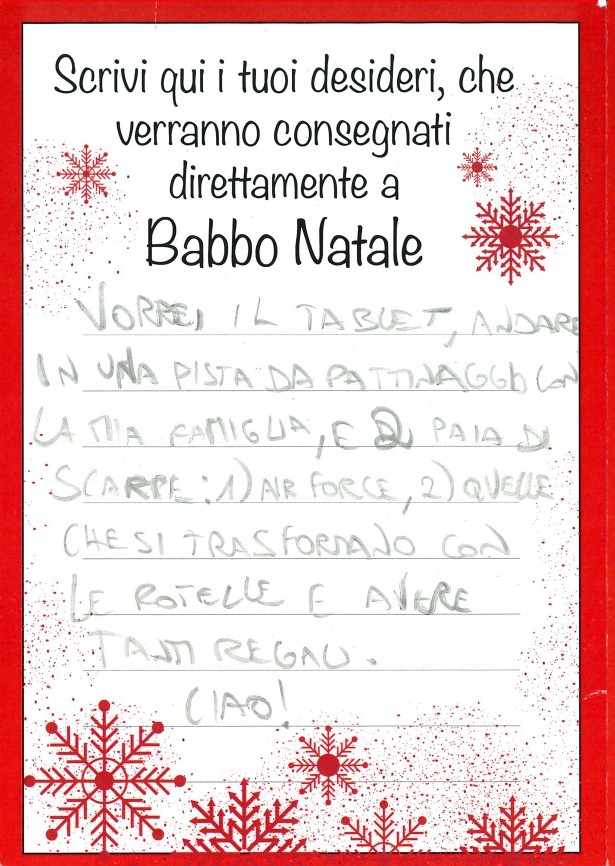 Scrivi qui i tuoi desideri, che
verranno consegnati
direttamente a
Babbo Natale
VORREI IL TABLET, ANDARE
IN UNA PISTA DA PATTINAGGIO CON
LA MIA FAMIGLIA, E 2 PAIA DI
SCARPE: 1) AIR FORCE, 2) QUELLE
CHE SI TRASFORMANO CON
LE ROTELLE E AVERE
TANTI REGALI.
CIAO!